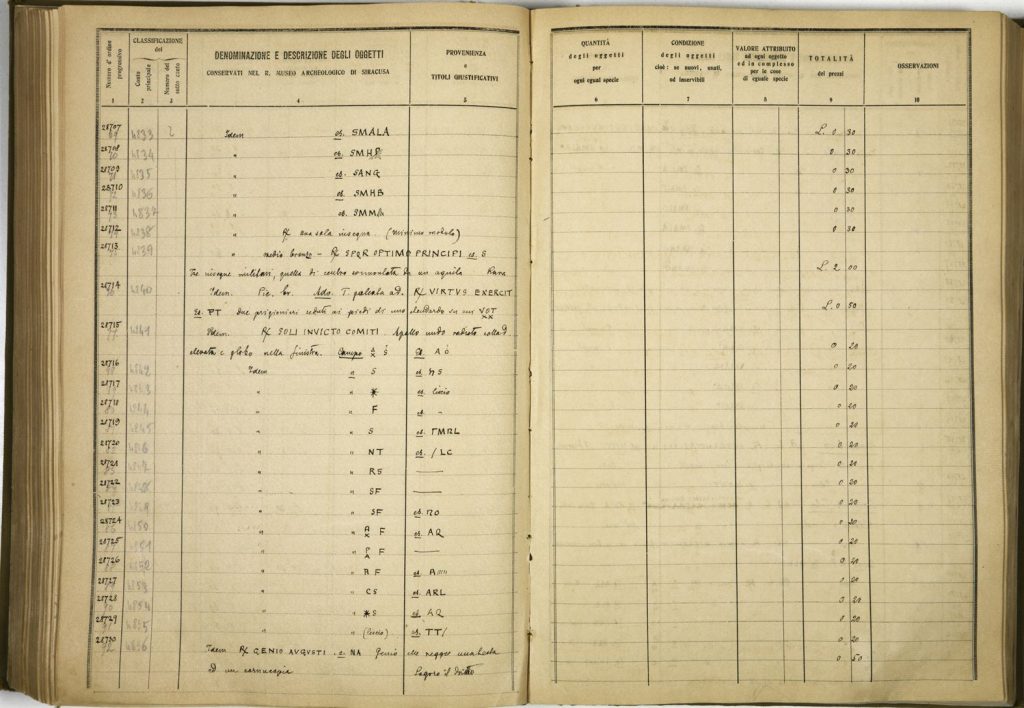 Numero d'ordine progressivo
CLASSIFICAZIONE del
Conto principale
Numero del sotto conto
DENOMINAZIONE E DESCRIZIONE DEGLI OGGETTI
CONSERVATI NEL R. MUSEO ARCHEOLOGICO DI SIRACUSA
PROVENIENZA
e
TITOLI GIUSTIFICATIVI
QUANTITÀ
degli oggetti
per
ogni egual specie
CONDIZIONE
degli oggetti
cioè: se nuovi, usati,
od inservibili
VALORE ATTRIBUITO
ad ogni oggetto
ed in complesso
per le cose
di eguale specie
TOTALITÀ
dei prezzi
OSSERVAZIONI
1 2 3 4 5 6 7 8 9 10
28707 4833 2 Idem es. SMALA L. 0 30
28708 4834 " es. 0 30
28709 4835 " es. SANG 0 30
28710 4836 " es. SMHB 0 30
28711 4837 " es. 0 30
28712 4838 " R/ una sola insegna. (minimo modulo) 0 30
28713 4839 " medio bronzo - R/ SPQR OPTIMO PRINCIPI es. S
Tre insegne militari, quella di centro sormontata da un aquila Rara L. 2 00
28714 4840 Idem. Pic. br. T. galeata ad. R/ VIRTVS EXERCIT
Es. PT due prigionieri seduti ai piedi di uno stendardo su cui VOT XX L. 0 50
28715 4841 Idem. R/ SOLI INVICTO COMITI. Apollo nudo radiato colla d.
elevata e globo nella sinistra. Campo S Es. 0 20
28716 4842 Idem " S es. 0 20
28717 4843 " " * es. liscio 0 20
28718 4844 " " F es. - 0 20
28719 4845 " " S es. 0 20
28720 4846 " " NT es. /LC 0 20
28721 4847 " " RS — 0 20
28722 4848 " " SF — 0 20
28723 4849 " " SF es. 0 20
28724 4850 " " F es. AQ 0 20
28725 4851 " " F — 0 20
28726 4852 " " F es. 0
28727 4853 " " CS es. ARL 0 20
28728 4854 " " *S es. AQ 0 20
28729 4855 " " (liscio) es. TT/ 0 20
28730 4856 Idem R/ GENIO AVGVSTI. NA Genio che regge una
ed un cornucopia Logoro il dritto 0 50